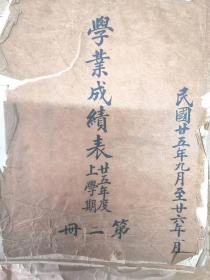 民國廿五年九月至廿六年 月
學業成績表
廿五年度
上學期
第一冊